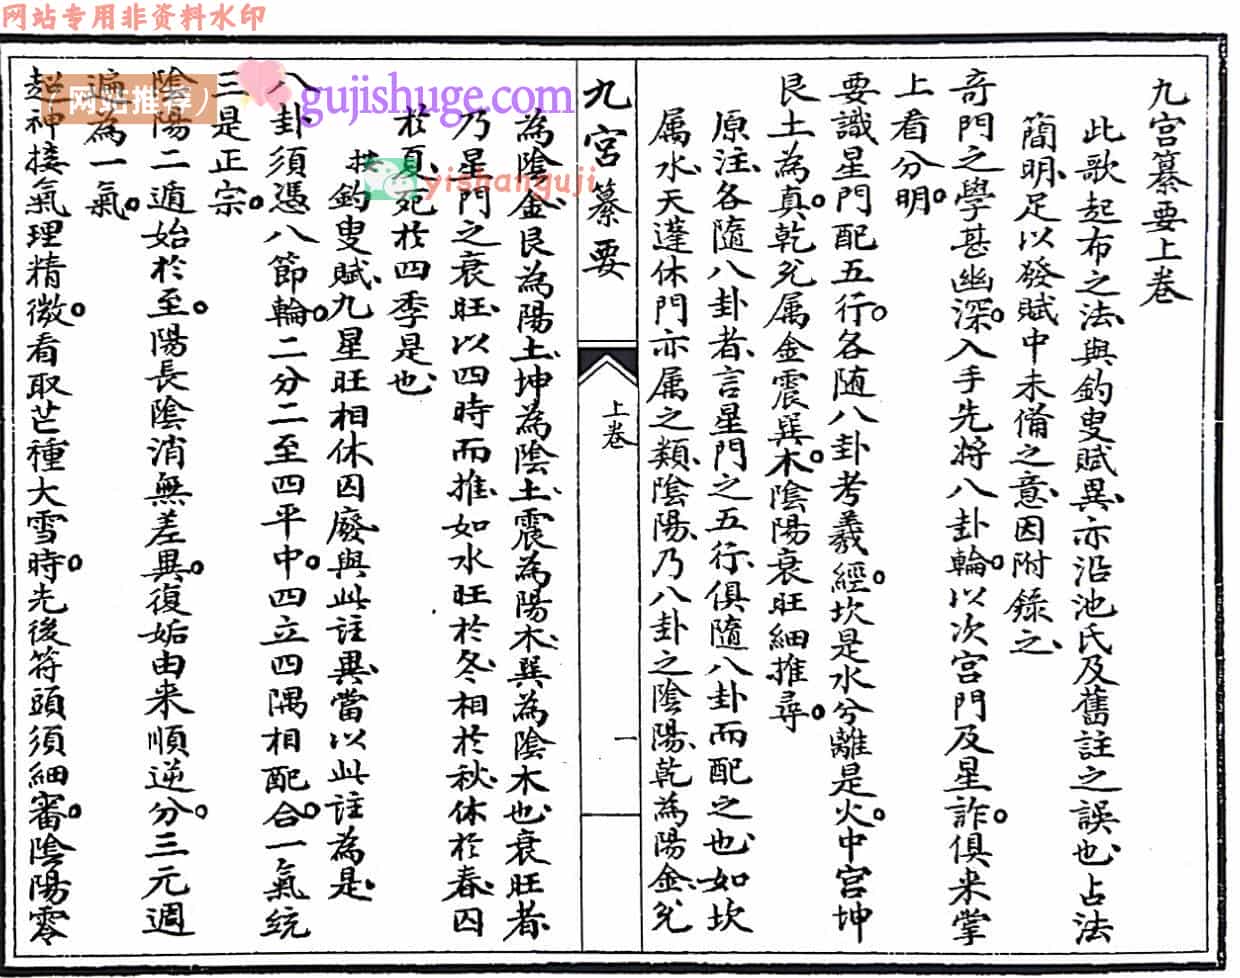 网站专用非资料水印
九宮纂要上卷
此歌起布之法、與釣叟賦異、亦沿池氏及舊註之誤也、占法
簡明、足以發賦中未備之意、因附錄之、
奇門之學甚幽深。入手先將八卦輪。以次宮門及星詐。俱来掌
上看分明。
要識星門配五行。各随八卦考羲經。坎是水兮離是火。中宮坤
艮土為真。乾兌属金震巽木。陰陽衰旺細推尋。
原注、各隨八卦者、言星門之五行、俱隨八卦而配之也、如坎
属水、天蓬休門亦属之之類、陰陽、乃八卦之陰陽、乾為陽金、兌
九宮纂要
上卷
一
為陰金、艮為陽土、坤為陰土、震為陽木、巽為陰木也、衰旺者、
乃星門之衰旺、以四時而推、如水旺於冬、相於秋、休於春、囚
於夏、死於四季是也、
按釣叟賦、九星旺相休囚廢與此註異、當以此註為是、
八卦須憑八節輪。二分二至四平中。四立四隅相配合。一氣統
三是正宗。
陰陽二遁始於至。陽長陰消無差異。復姤由来順逆分。三元週
遍為一氣。
超神接氣理精微。看取芒種大雪時。先後符頭須細審。陰陽零
（网站推荐）
gujishuge.com
yishanguji